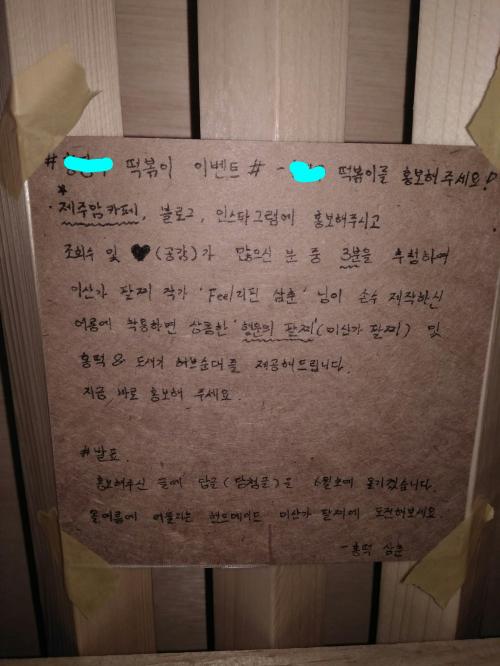 # 떡볶이 이벤트 # - 떡볶이를 홍보해 주세요!
* 제주맘카페, 블로그, 인스타그램에 홍보해주시고
조회수 및 ♥(공감)가 많으신 분 중 3분을 추첨하여
미산가 팔찌 작가 'Feel리핀 삼춘' 님이 손수 제작하신
여름에 착용하면 상큼한 '행운의 팔찌'(미산가 팔찌) 및
홍떡 & 도새기 허브순대를 제공해드립니다.
지금 바로 홍보해 주세요.
# 발표.
홍보해주신 글에 답글(당첨글)은 6월초에 올리겠습니다.
올여름에 어울리는 핸드메이드 미산가 팔찌에 도전해보세요.
- 홍떡 삼춘